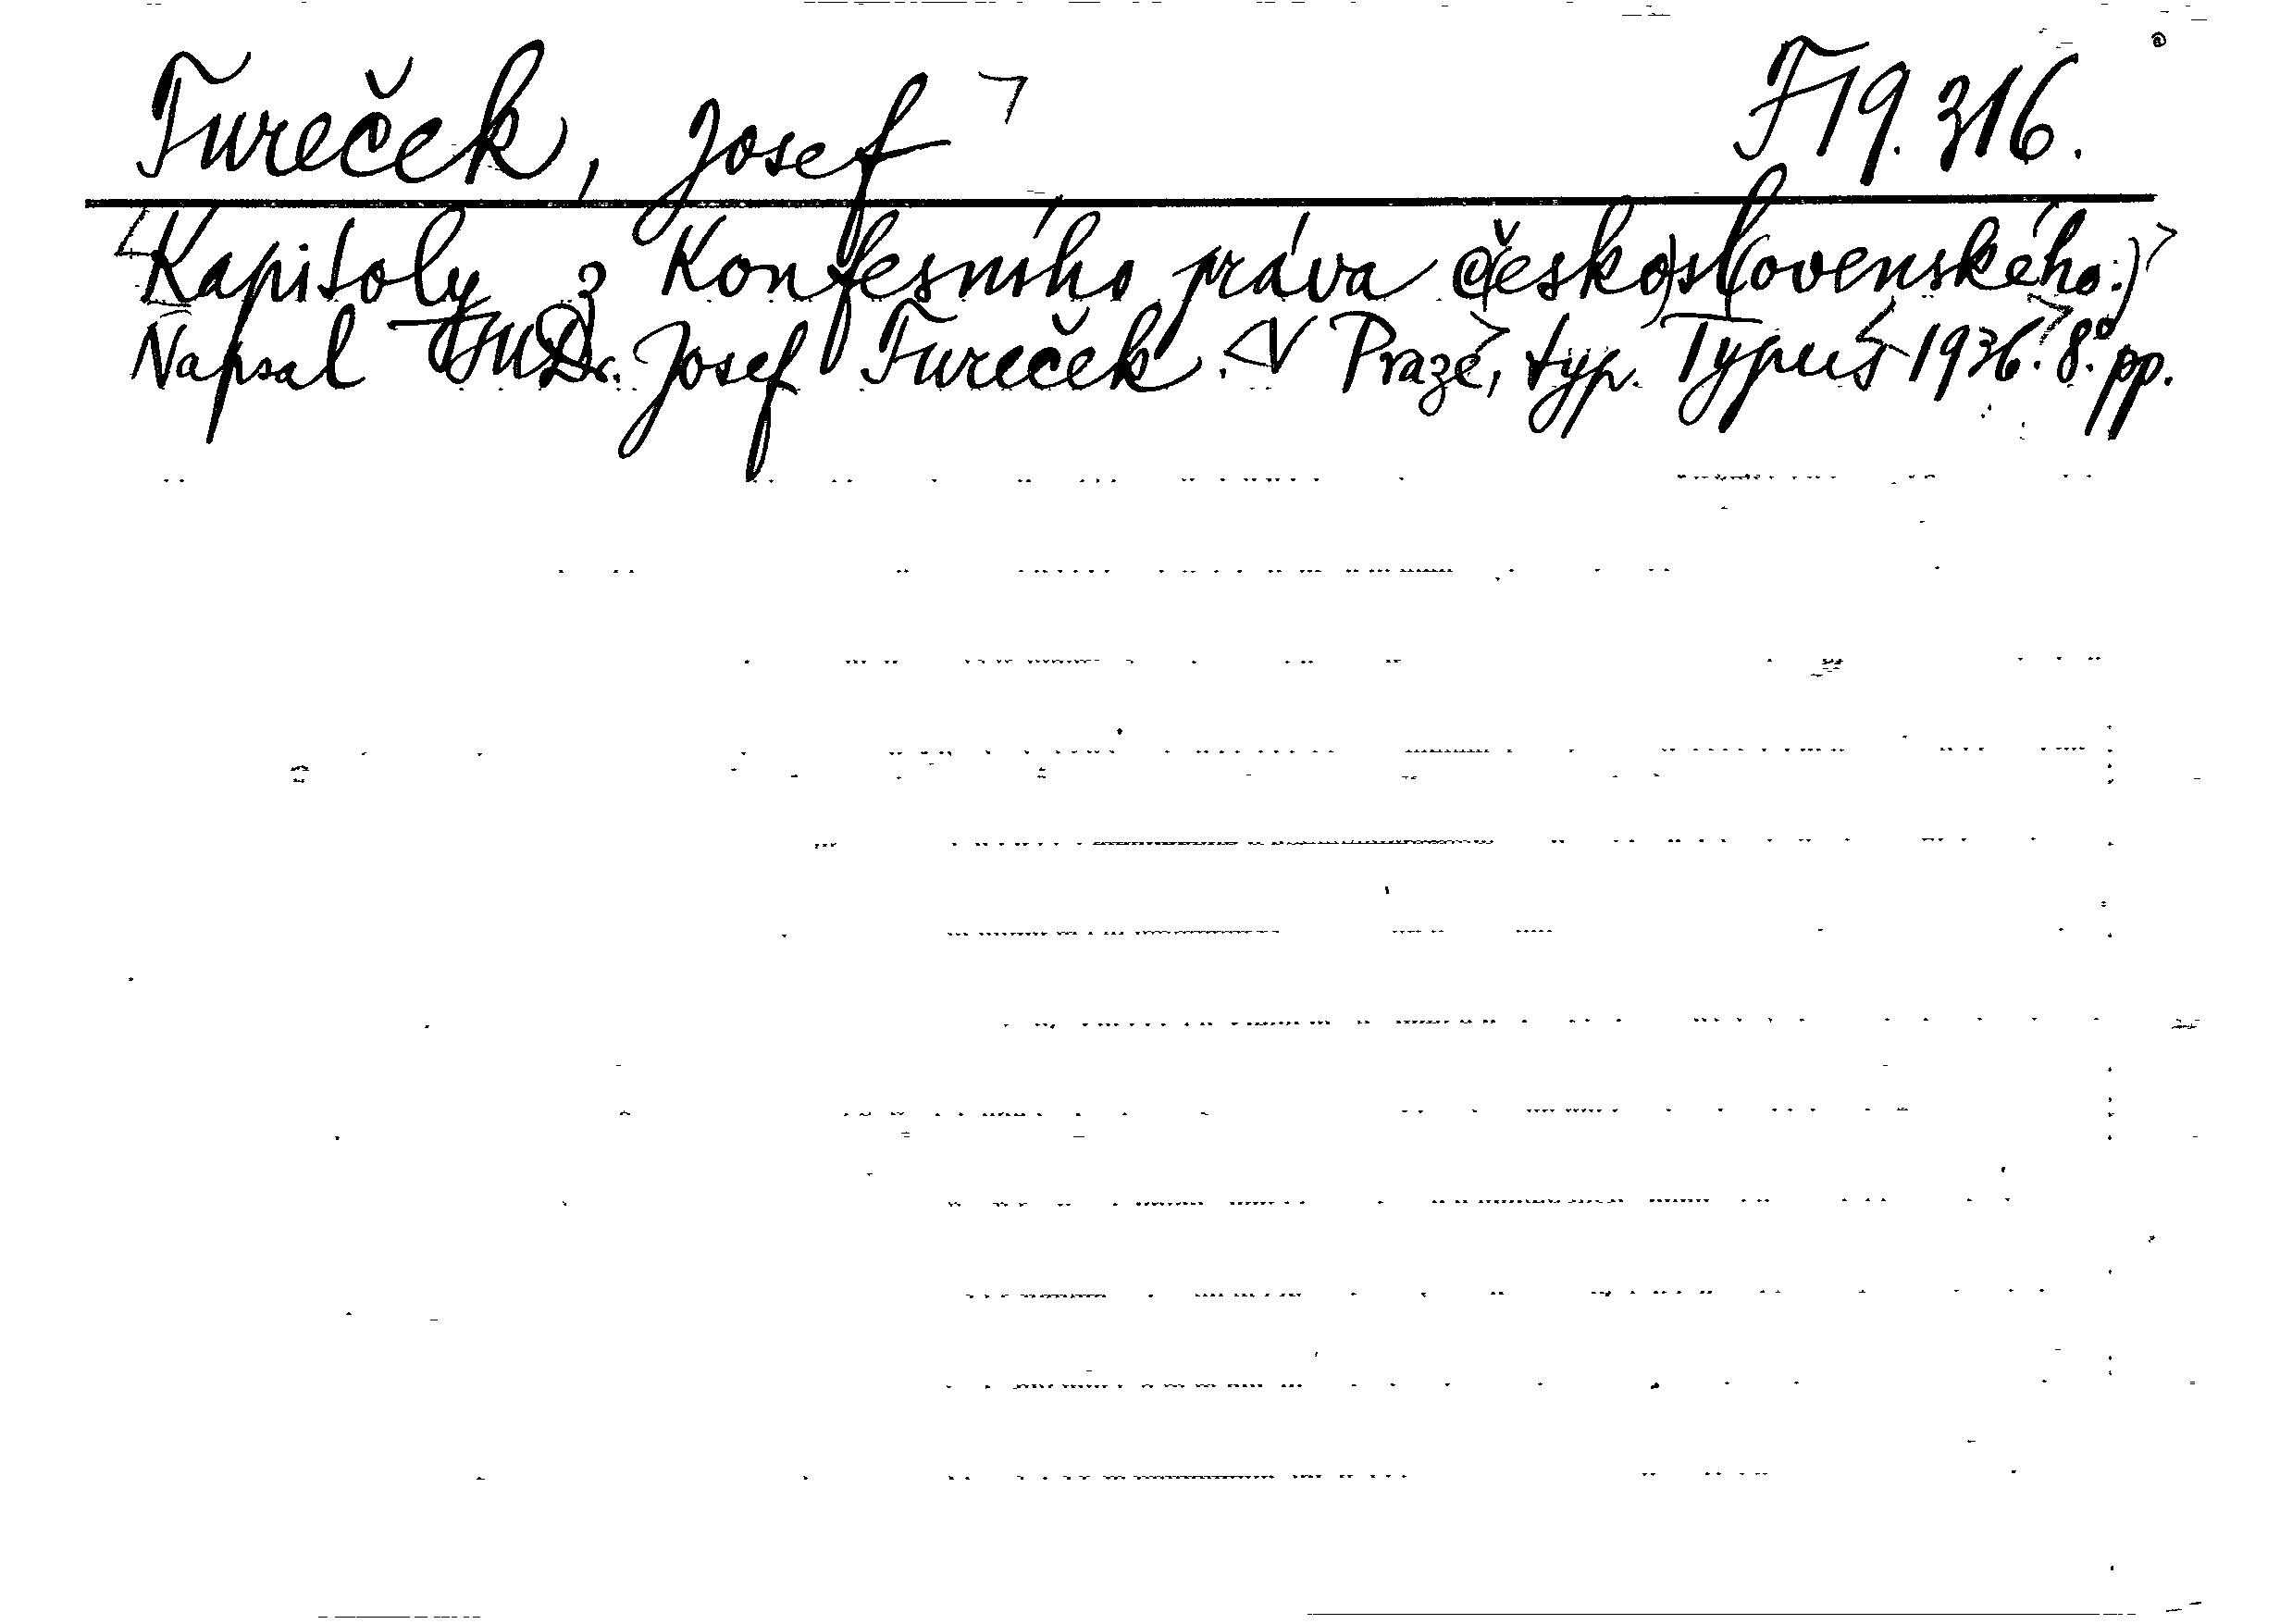 Tureček, Josef F 19.316.
Kapitoly z Konfesního práva česko)sl(ovenského.)
Napsal JUDr. Josef Tureček. V Praze, typ. Typus 1936. 8° pp.